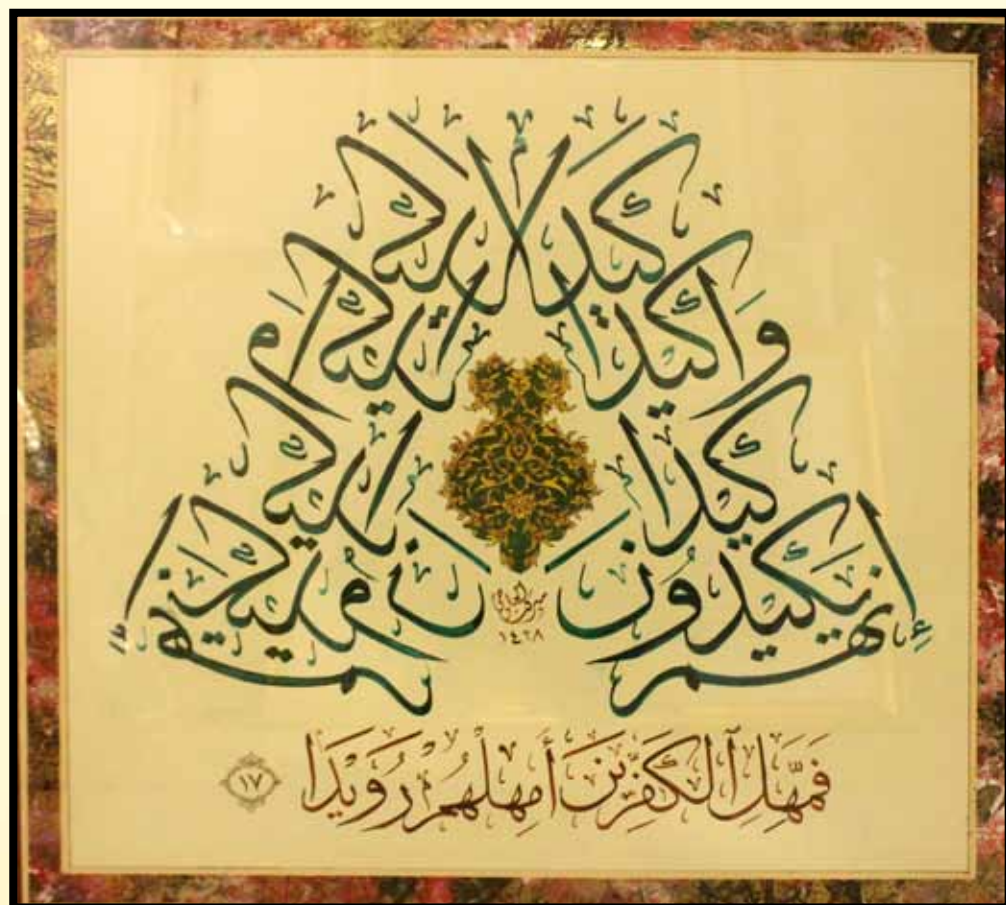 إنهم يكيدون
كيدا
وأكيد
كيدا
١٤٢٨
فَمَهِّلِ ٱلْكَٰفِرِينَ أَمْهِلْهُمْ رُوَيْدًا ١٧